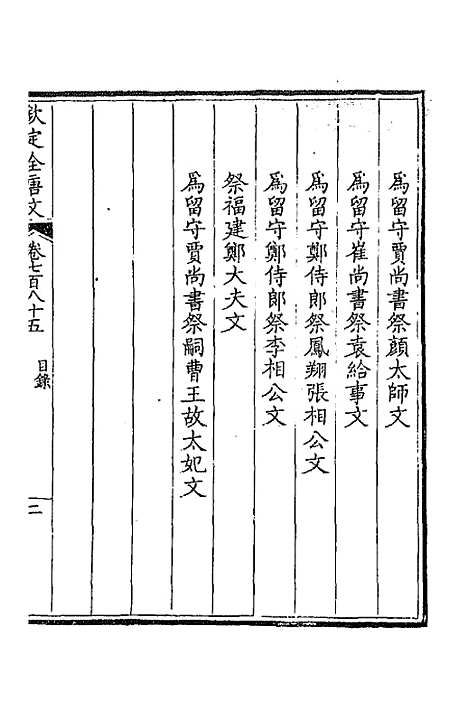 為留守賈尚書祭顏太師文
為留守崔尚書祭袁給事文
為留守鄭侍郎祭鳳翔張相公文
為留守鄭侍郎祭李相公文
祭福建鄭大夫文
為留守賈尚書祭嗣曹王故太妃文
欽定全唐文
卷七百八十五
目錄
二